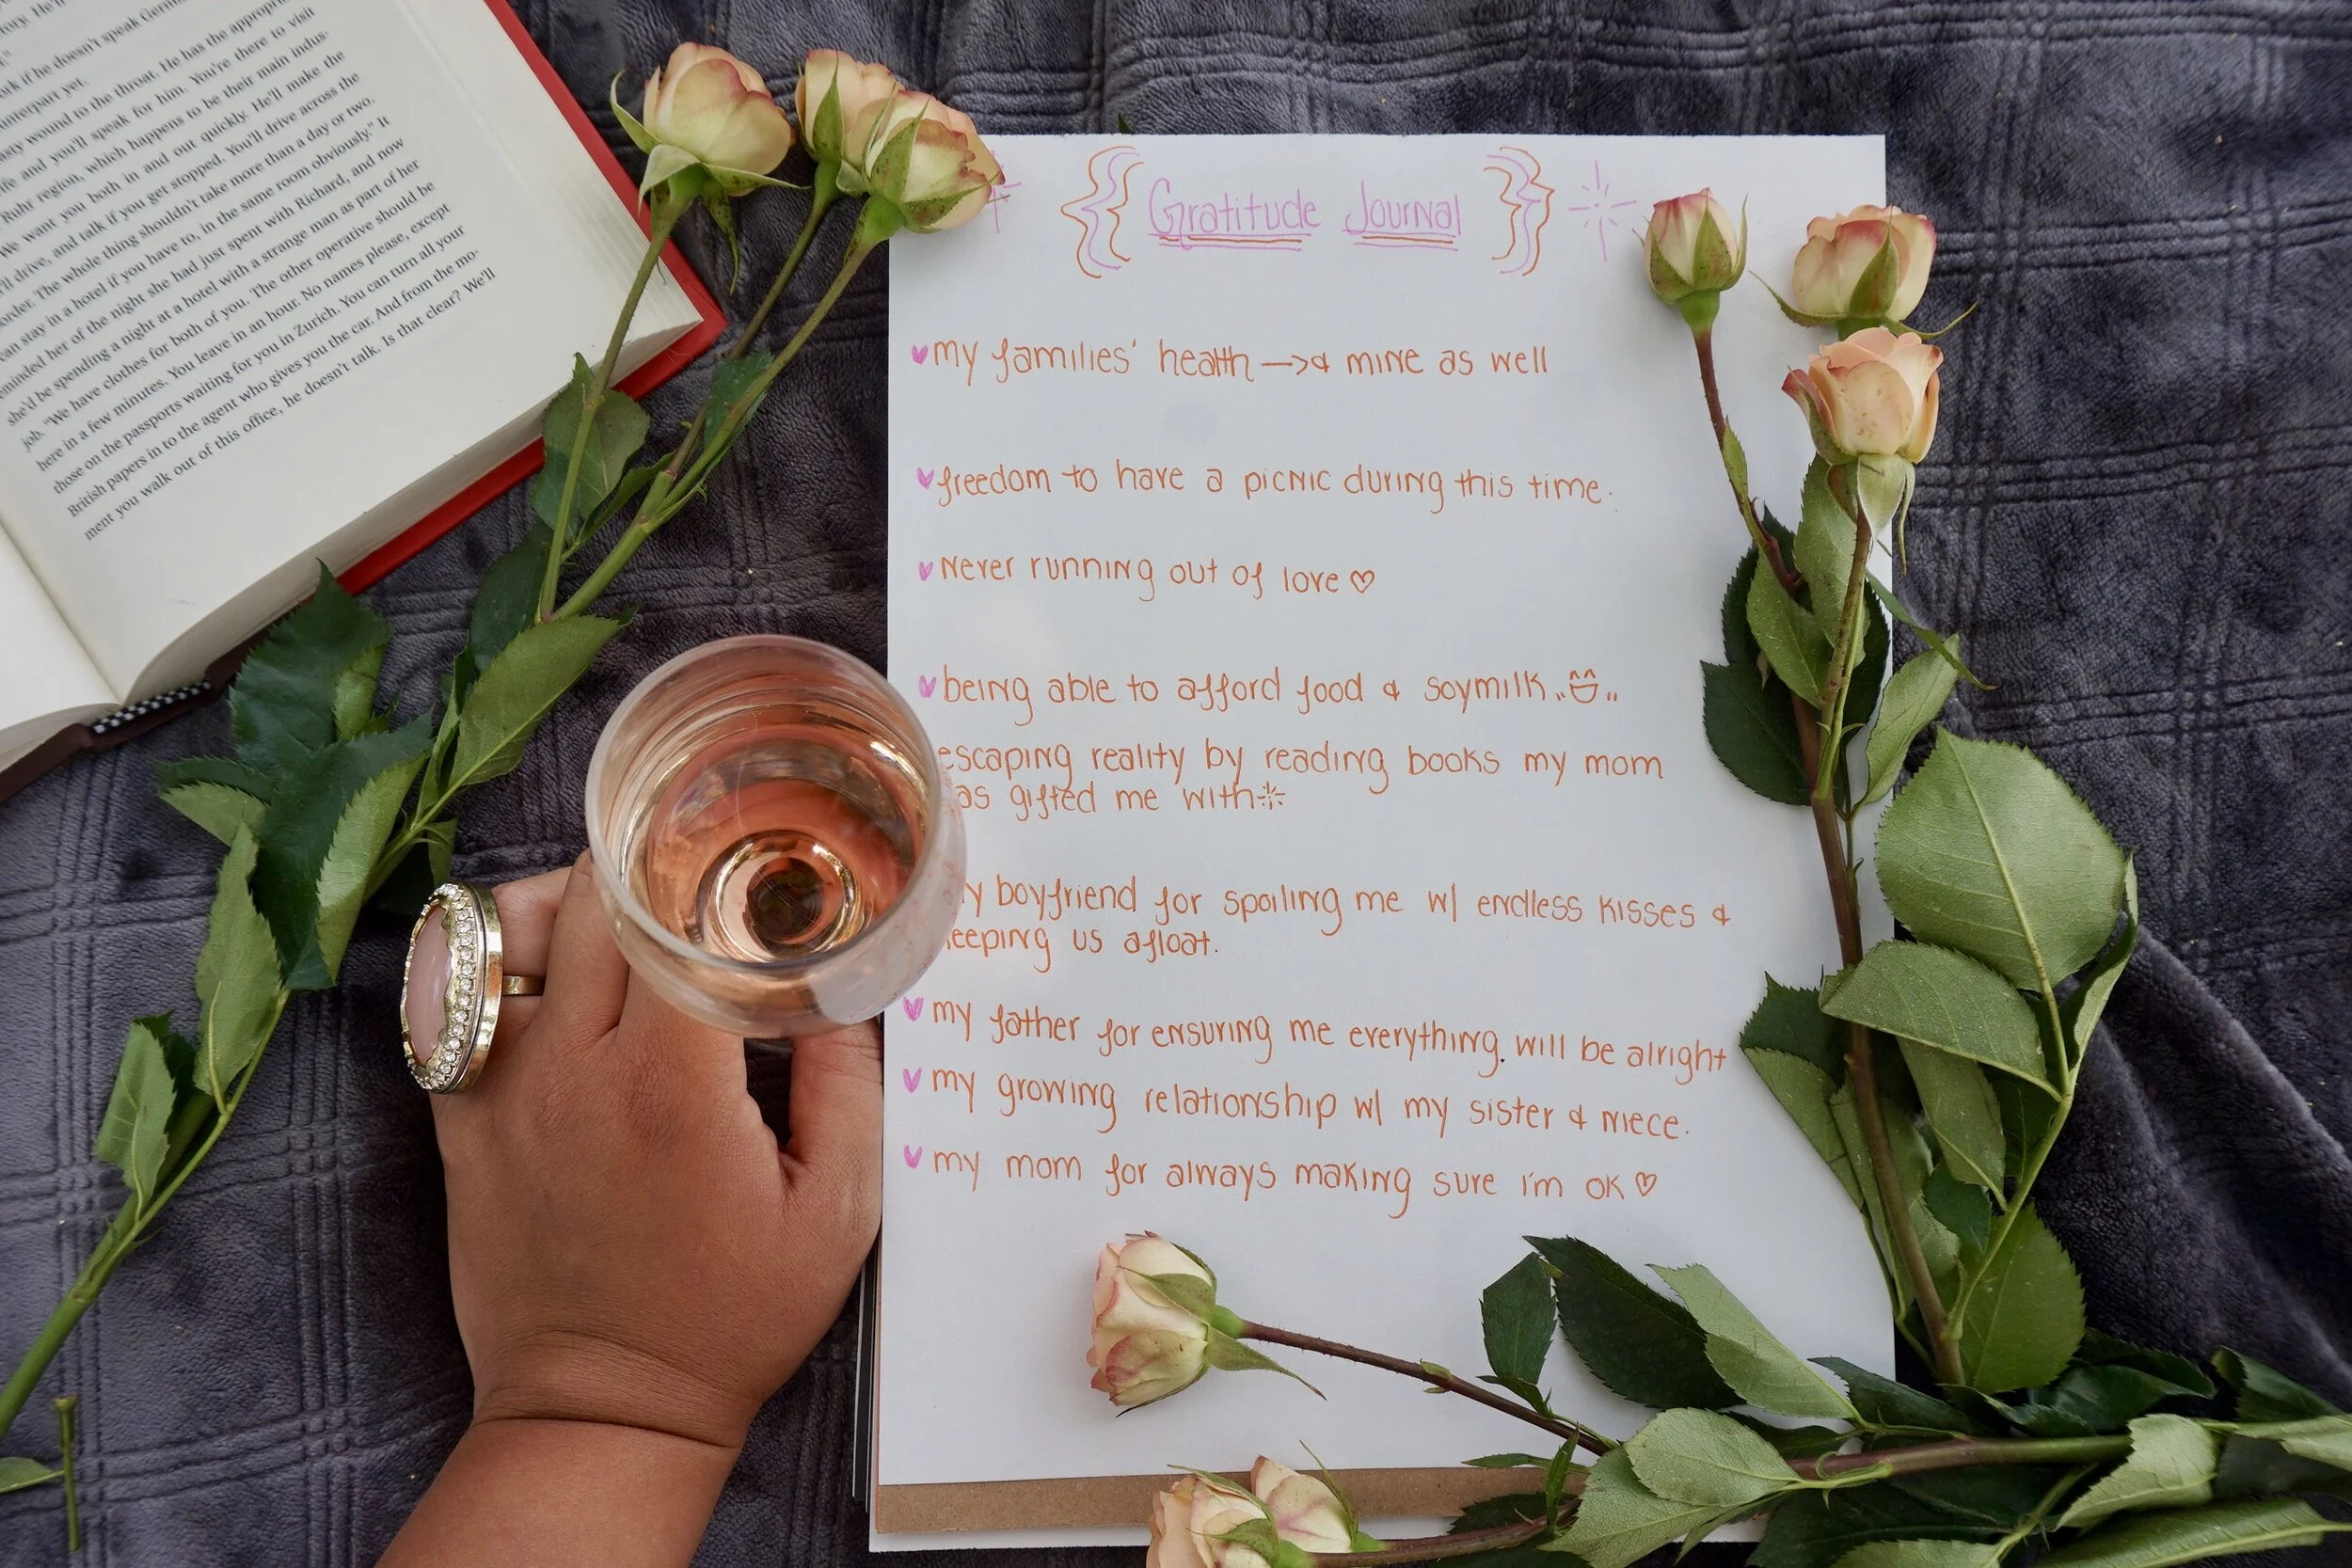 tory. He'll
ork if he doesn't speak Germ
unterpart yet.
asty wound to the throat. He has the appropri
ife and you'll speak for him. You're there to visit
Ruhr region, which happens to be their main indus-
We want you both in and out quickly. He'll make the
'll drive, and talk if you get stopped. You'll drive across the
order. The whole thing shouldn't take more than a day or two.
can stay in a hotel if you have to, in the same room obviously." It
minded her of the night she had just spent with Richard, and now
she'd be spending a night at a hotel with a strange man as part of her
job. "We have clothes for both of you. The other operative should be
here in a few minutes. You leave in an hour. No names please, except
those on the passports waiting for you in Zurich. You can turn all your
British papers in to the agent who gives you the car. And from the mo-
ment you walk out of this office, he doesn't talk. Is that clear? We'll
Gratitude Journal
my families' health → & mine as well
freedom to have a picnic during this time.
never running out of love ♡
being able to afford food & soymilk
escaping reality by reading books my mom
as gifted me with
y boyfriend for spoiling me w/ endless kisses &
eeping us afloat.
my father for ensuring me everything. will be alright
my growing relationship w/ my sister & niece.
my mom for always making sure i'm ok ♡